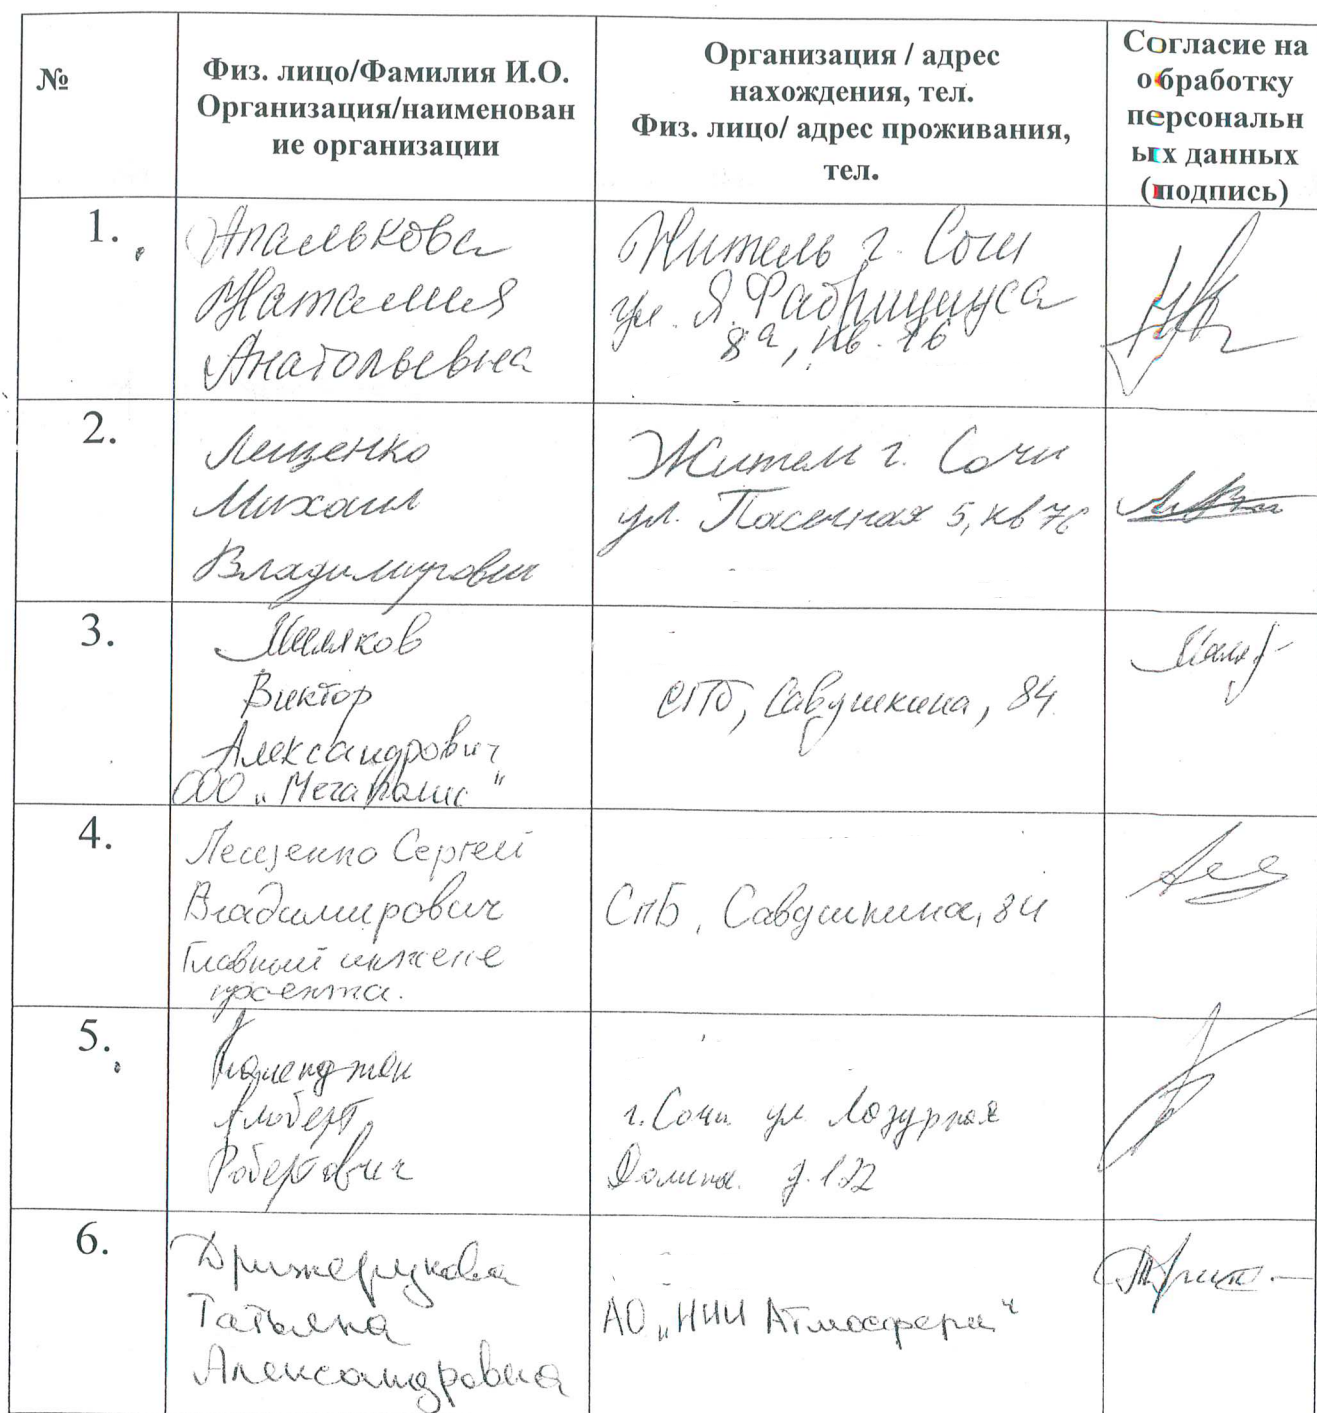 №
Физ. лицо/Фамилия И.О.
Организация/наименован
ие организации
Организация / адрес
нахождения, тел.
Физ. лицо/ адрес проживания,
тел.
Согласие на
обработку
персональн
ых данных
(подпись)
1.
Апалькова
Наталия
Анатольевна
Житель г. Сочи
ул. Я. Фабрициуса
8а, кв. 16
2.
Лещенко
Михаил
Владимирович
Жители г. Сочи
ул. Пасечная 5, кв 76
3.
Виктор
Александрович
ООО „Мегаполис"
СПб, Савушкина, 84.
4.
Лещенко Сергей
Владимирович
Главный инжене
проекта.
СпБ, Савушкина, 84
5.
Альберт
Робертович
г. Сочи ул Лазурная
Долина. д. 122
6.
Татьяна
Александровна
АО „НИИ Атмосфера"